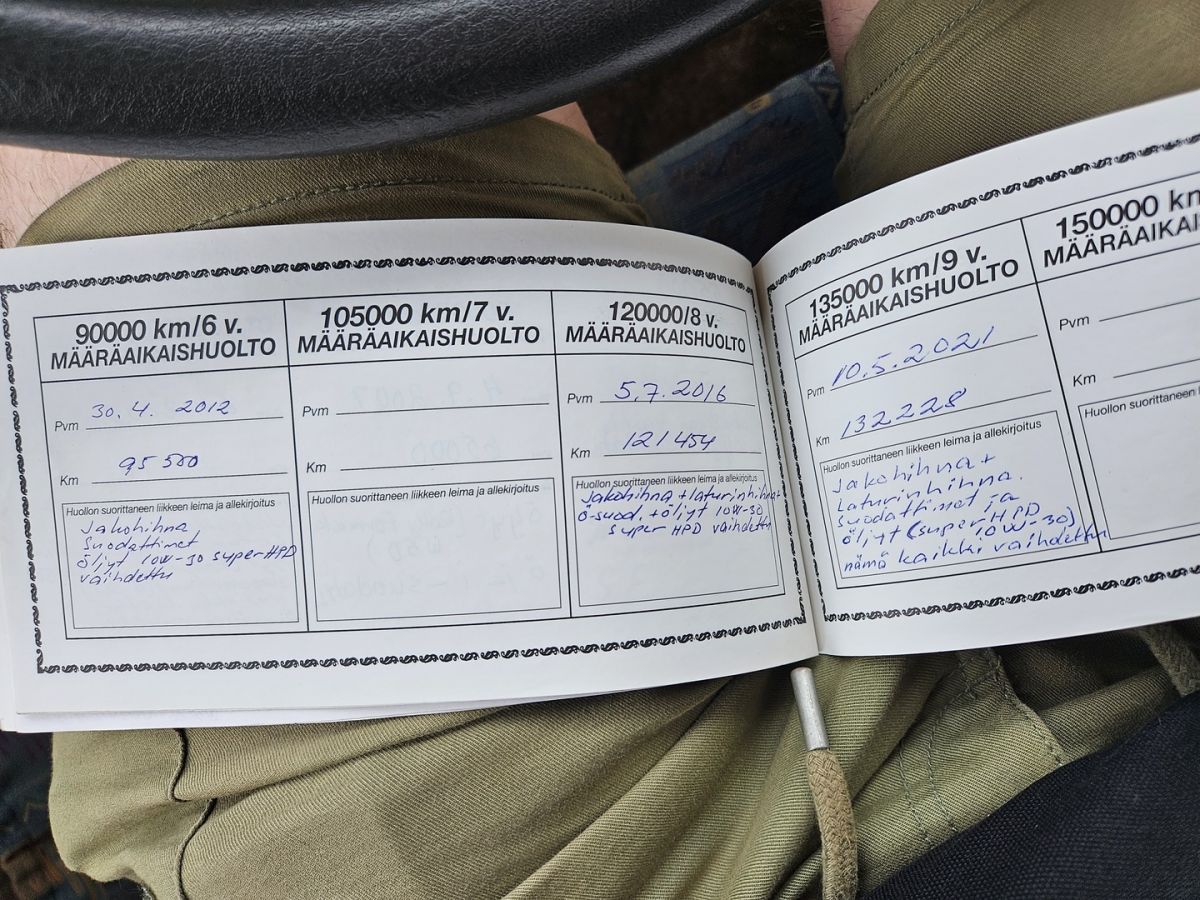 90000 km/6 v.
MÄÄRÄAIKAISHUOLTO
Pvm 30.4. 2012
Km 95500
Huollon suorittaneen liikkeen leima ja allekirjoitus
Jakohihna,
Suodattimet
öljyt 10W-30 superHPD
vaihdettu
105000 km/7 v.
MÄÄRÄAIKAISHUOLTO
Pvm
Km
Huollon suorittaneen liikkeen leima ja allekirjoitus
120000/8 v.
MÄÄRÄAIKAISHUOLTO
Pvm 5.7.2016
Km 121454
Huollon suorittaneen liikkeen leima ja allekirjoitus
Jakohihna + laturinhihna+
ö-suod. + öljyt 10W-30
super HPD vaihdettu
135000 km/9 v.
MÄÄRÄAIKAISHUOLTO
Pvm 10.5.2021
Km 132228
Huollon suorittaneen liikkeen leima ja allekirjoitus
Jakohihna +
Laturinhihna.
Suodattimet ja
öljyt (super HPD
10W-30)
nämä kaikki vaihdettu
150000 km
MÄÄRÄAIKAI
Pvm
Km
Huollon suorittaneen l